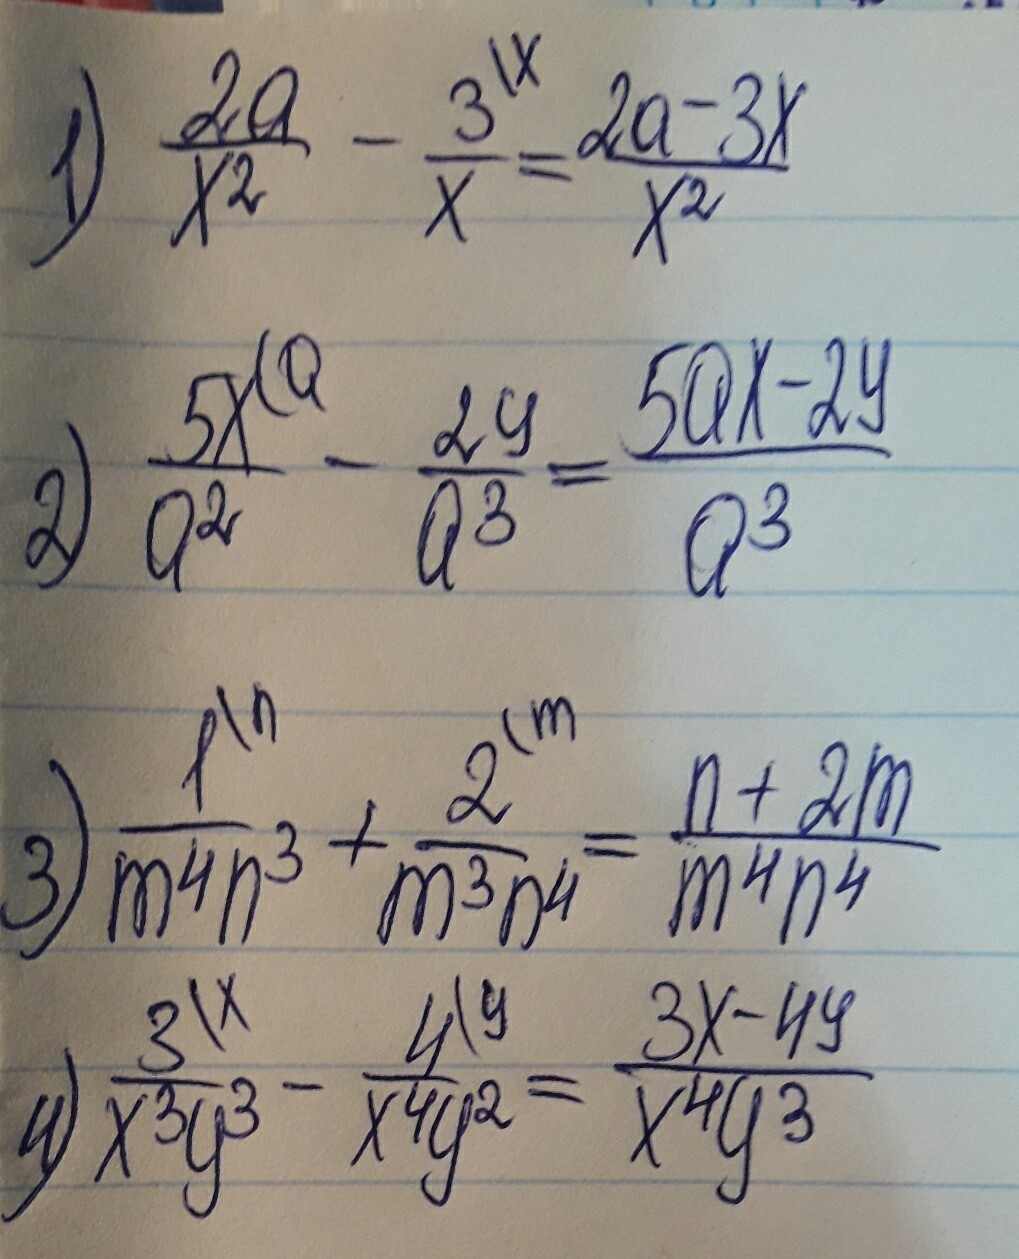 1) \frac{2a}{x^2} - \frac{3^{\backslash x}}{x} = \frac{2a-3x}{x^2}
2) \frac{5x^{(a}}{a^2} - \frac{2y}{a^3} = \frac{5ax-2y}{a^3}
3) \frac{1^{\backslash n}}{m^4n^3} + \frac{2^{\backslash m}}{m^3n^4} = \frac{n+2m}{m^4n^4}
4) \frac{3^{\backslash x}}{x^3y^3} - \frac{4^{\backslash y}}{x^4y^2} = \frac{3x-4y}{x^4y^3}